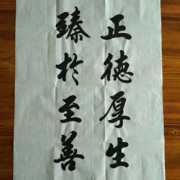 正德厚生
臻於至善